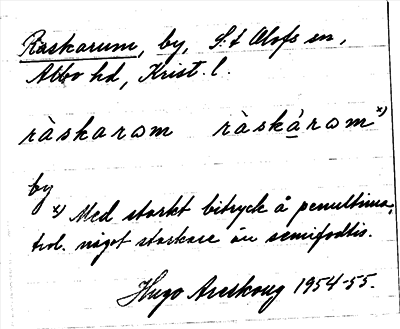 Råskarum, by, S:t Olofs sn,
Albo hd, Krist. l.
ràskarəm ràskárəm x)
by
x) Med starkt bitryck å penultima,
trol. något starkare än semifortis.
Hugo Areskoug 1954-55.